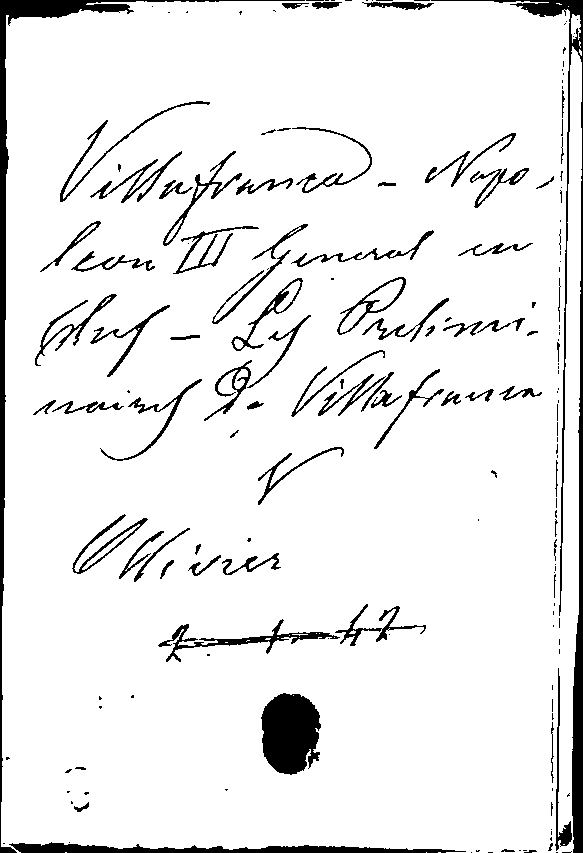 Villafranca - Napo-
leon III General en
chef - Les Prelimi-
naires De Villafranca
V
Ollivier
2 1 42